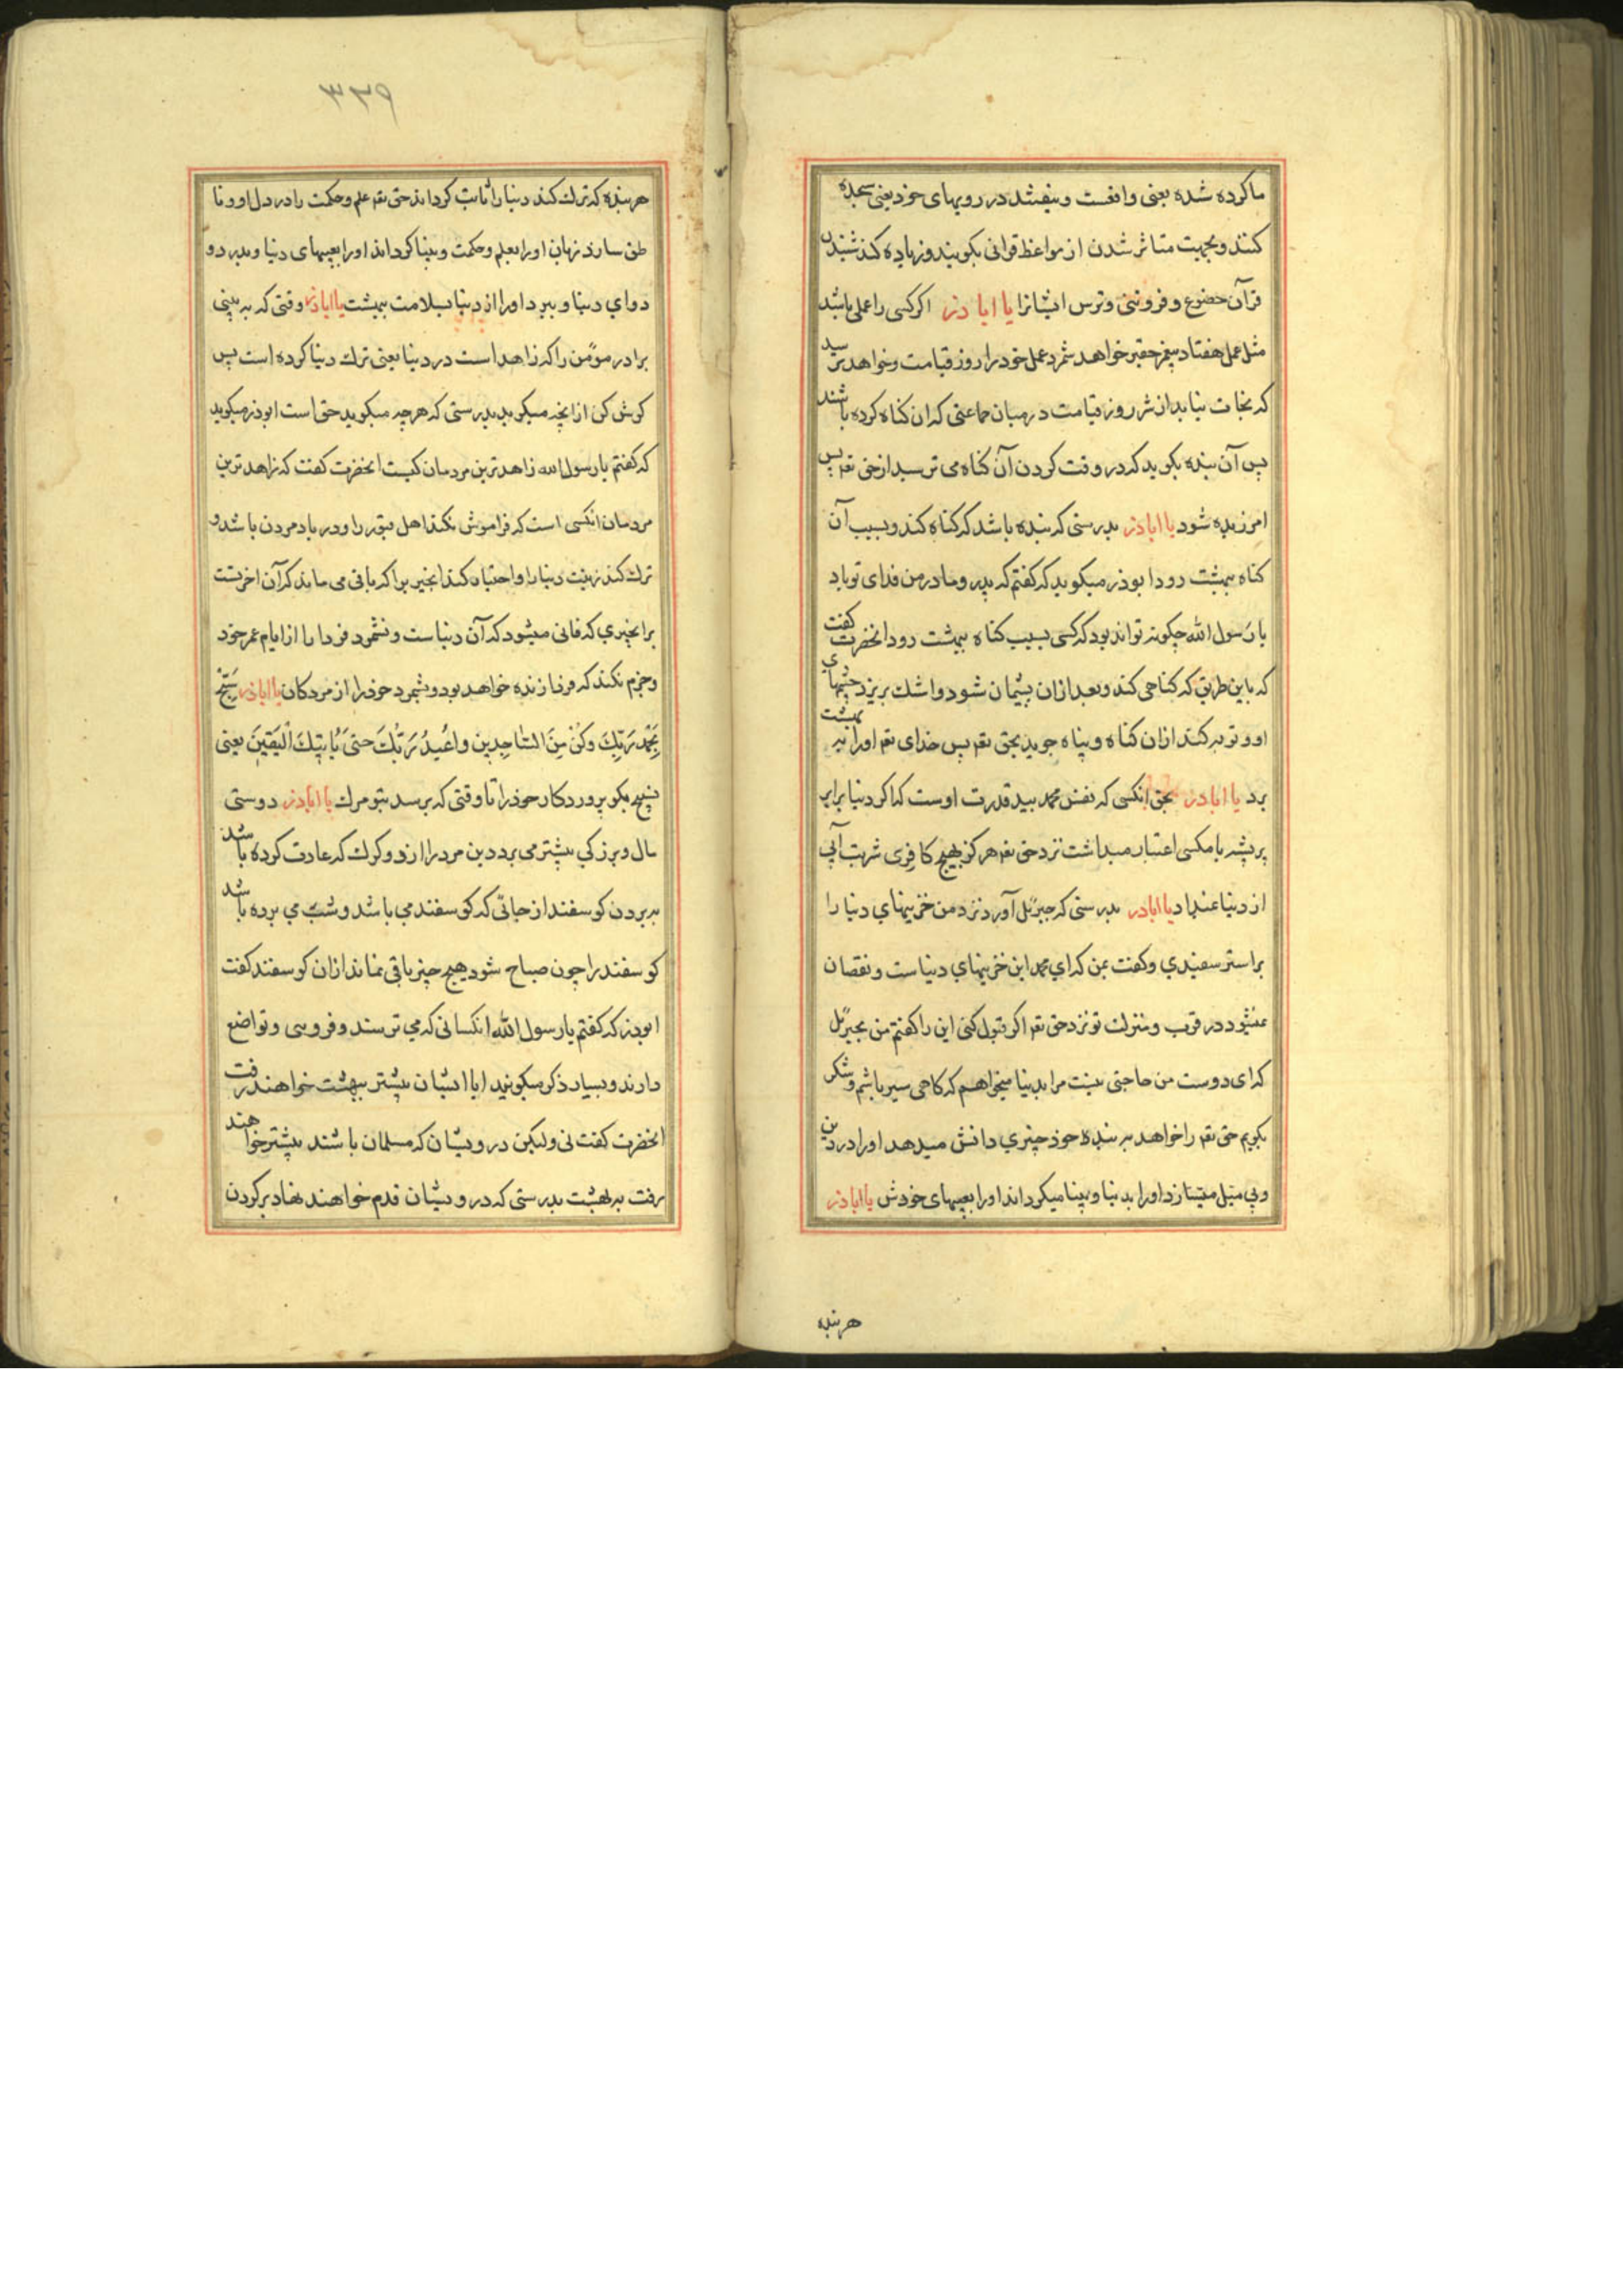 ما کرده شده یعنی واقعست و بیفتند در رویهای خود یعنی سجده
کنند و بجهت متاثر شدن از مواعظ قرانی بگویند و زیاده کند شنیدن
قرآن خضوع و فروتنی و ترس ایشانرا یا ابا ذر اگر کسی را عملی باشد
مثل عمل هفتاد پیغمبر حقیر خواهد شمرد عمل خود را روز قیامت و خواهد ترسید
که نجات نیابد از شر روز قیامت در میان جماعتی که ان کناه کرده باشند
پس آن بنده بکوید که در وقت کردن آن کناه می ترسید از حق تعم پس
امرزیده شود یا اباذر بدرستی که بنده باشد که کناه کند و بسبب آن
کناه ببهشت رود ابوذر میکوید که کفتم که پدر و مادر من فدای تو باد
یا رسول الله چکونه تواند بود که کسی بسبب کناه ببهشت رود انحضرت کفت
که باین طریق که کناهی کند و بعد ازان پشیمان شود و اشك بریزد چشمهای
او و توبه کند ازان کناه و پناه جوید بحق تعم پس خدای تعم اورا به بهشت
برد یا اباذر بحق انکسی که نفس محمد بید قدرت اوست که اکر دنیا برابر
پر پشه یا مکسی اعتبار میداشت نزد حق تعم هرکز بهیچ کافری شربت آبی
از دنیا نمیداد یا اباذر بدرستی که جبرئیل آورد نزد من خزینهای دنیا را
بر استر سفیدی و کفت بمن که ای محمد این خزینهای دنیاست و نقصان
نمیشود در قرب و منزلت تو نزد حق تعم اکر قبول کنی این را کفتم من بجبرئیل
که ای دوست من حاجتی نیست مرا بدنیا میخواهم که کاهی سیر باشم و شکر
بکویم حق تعم را خواهد به بنده خود چیزی دانش میدهد اورا در دین
و بی میل میسازد اورا بدنیا و بینا میکرداند اورا بعیبهای خودش یا اباذر
هر بنده
۳۲۹
هر بنده که ترك کند دنیا را ثابت کرداند حق تعم علم و حکمت را در دل او و نا
طق سازد زبان اورا بعلم و حکمت و بینا کرداند اورا بعیبهای دنیا و بدرد و
دوای دنیا و ببرد اورا از دنیا بسلامت ببهشت یا اباذر وقتی که به بینی
برادر مؤمن را که زاهد است در دنیا یعنی ترك دنیا کرده است پس
کوش کن از انچه میکوید بدرستی که هرچه میکوید حق است ابوذر میکوید
که کفتم یا رسول الله زاهدترین مردمان کیست انحضرت کفت که زاهدترین
مردمان انکسی است که فراموش نکند اهل قبور را و در یاد مردن باشد و
ترك کند زینت دنیا را و اختیار کند انچیزیرا که باقی می ماند که آن اخرتست
بر انچیزی که فانی میشود که آن دنیاست و نشمرد فردا را از ایام عمر خود
و جزم نکند که فردا زنده خواهد بود و بشمرد خود را از مردکان یا اباذر سَبِّح
بِحَمْدِ رَبِّكَ وَكُنْ مِنَ السّاجِدین وَاعْبُدُ رَبَّكَ حَتّىَ یُأتِیَكَ الْیَقینَ یعنی
تسبیح بکو پروردکار خود را تا وقتی که برسد بتو مرك یا اباذر دوستی
مال و بزرکی بیشتر می برد دین مرد را از دو کرك که عادت کرده باشد
به بردن کوسفند از جائی که کوسفند می باشد و شب می برده باشد
کوسفند را چون صباح شود هیچ چیز باقی نماند ازان کوسفند کفت
ابوذر که کفتم یا رسول الله انکسانی که می ترسند و فروتنی و تواضع
دارند و بسیار ذکر میکویند ایا ایشان پیشتر ببهشت خواهند رفت
انحضرت کفت نی ولیکن درویشان که مسلمان باشند پیشتر خواهند
رفت به بهشت بدرستی که درویشان قدم خواهند نهاد بر کردن